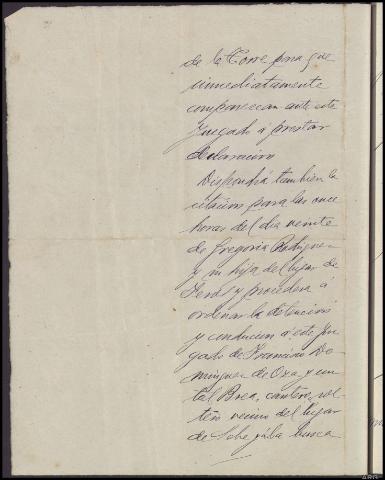 de la Torre para que
inmediatamente
comparezcan ante este
Juzgado á prestar
declaracion
Dispondrá tambien la
citacion para las once
horas del dia veinte
de Gregoria Rodriguez
y su hija del lugar de
y procederá á
ordenar la detencion
y conduccion á este Juz-
gado de Francisco Do-
minguez de Oza y un
tal Brea, cantero, sol-
tero vecino del lugar
de